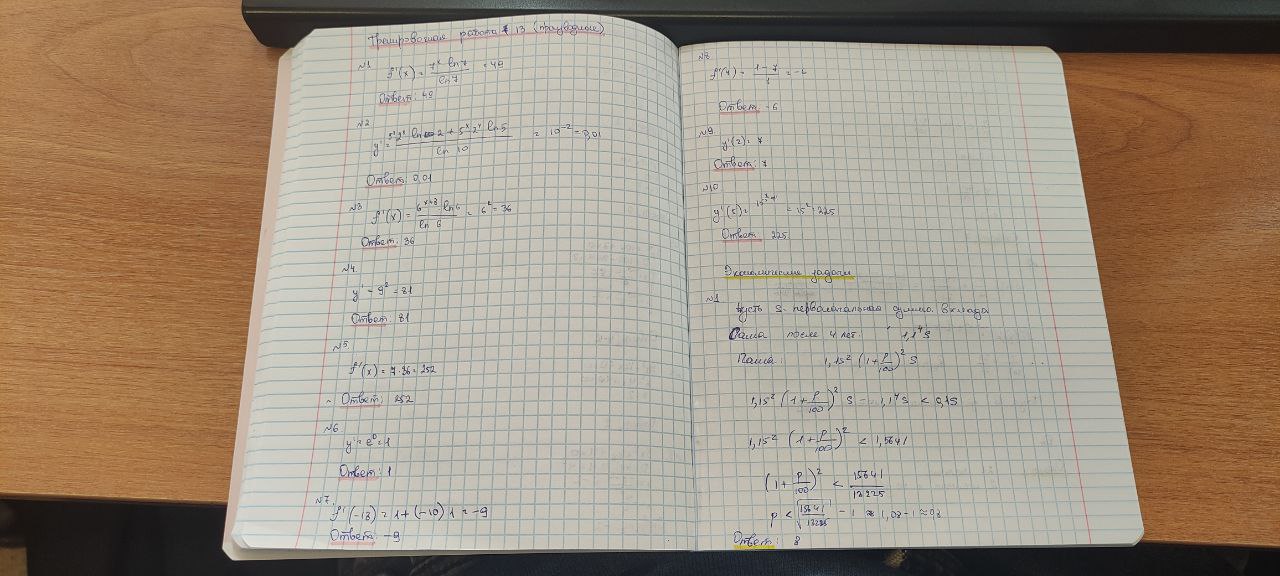 Тренировочная работа № 13 (производные)
№1
f'(x) = 7ˣ ln7 / ln7 = 49
Ответ: 49
№2
y' = 5ˣ2ˣ ln 2 + 5ˣ·2ˣ ln5 / ln 10 = 10⁻² = 0,01
Ответ: 0,01
№3
f'(x) = 6ˣ⁺⁸ ln6 / ln 6 = 6² = 36
Ответ: 36
№4
y' = 9² = 81
Ответ: 81
№5
f'(x) = 7·36 = 252
Ответ: 252
№6
y' = e⁰ = 1
Ответ: 1
№7
f'(-13) = 1 + (-10) 1 = -9
Ответ: -9
№8
1-7 / 1
Ответ -6
№9
y'(2) = 7
Ответ: 7
№10
y'(5) = = 15² = 225
Ответ: 225
Экономические задачи
№1
Пусть S - первоначальная сумма вклада
Саша после 4 лет: 1,1⁴ S
Паша: 1,15² (1 + p/100)² S
1,15² (1 + p/100)² S - 1,1⁴ S < 0,1S
1,15² (1 + p/100)² < 1,5641
(1 + p/100)² < 15641/13225
p < √15641/13225 - 1 ≈ 1,08 - 1 ≈ 0,8
Ответ: 8